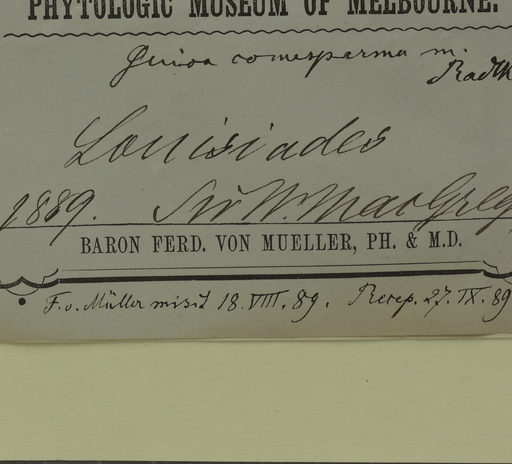 PHYTOLOGIC MUSEUM OF MELBOURNE.
Guioa comesperma m.
Radlk
Louisiades
1889. Sir Wm MacGreg
BARON FERD. VON MUELLER, PH. & M.D.
F. v. Müller misit 18. VIII. 89. Recep. 27. IX. 89